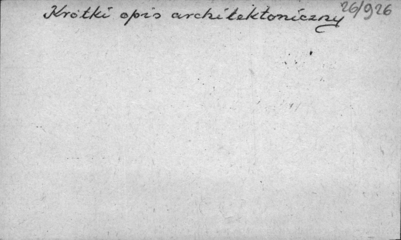 Krótki opis architektoniczny 26/926